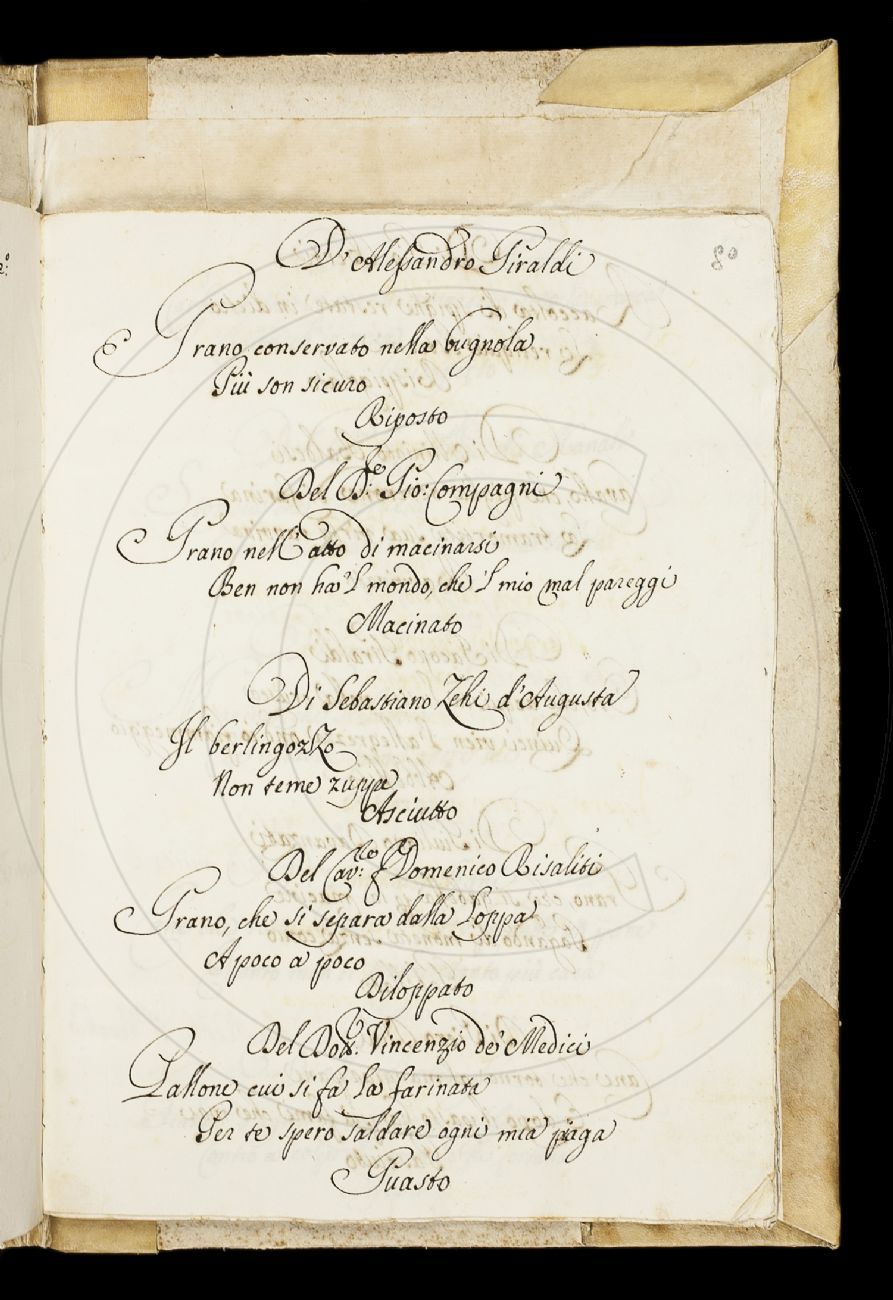 8º
D'Alessandro Giraldi
Grano conservato nella bugnola
Più son sicuro
Riposto
Del P.e Gio: Compagni
Grano nell'atto di macinarsi
Ben non ha 'l mondo, che 'l mio mal pareggi
Macinato
Di Sebastiano Zehi d'Augusta
Il berlingozzo
Non teme zuppa
Asciutto
Del Cav:re f Domenico Risaliti
Grano, che si separa dalla loppa
A poco a poco
Diloppato
Del Dott.r Vincenzio de' Medici
Pallone cui si fa la farinata
Per te spero saldare ogni mia piaga
Guasto